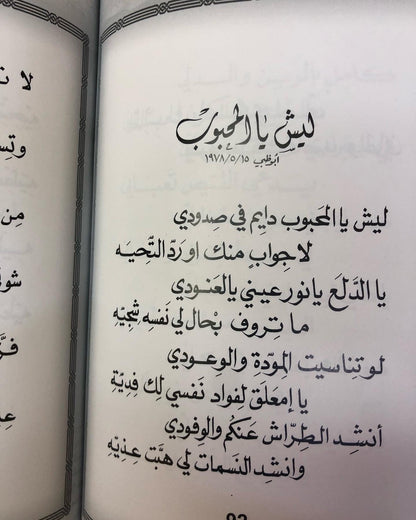 ليش يا المحبوب
أبوظبي ١٩٧٨/٥/١٥
ليش يا المحَبوب دايم في صِدودي
لا جِوابٍ منك او رَدّ التِّحيَه
يا الدَّلَع يا نور عيني يالعَنودي
ما تِروف بْحال لي نَفسِه شِجيّه
لو تناسيت المودّة والوعودي
يا إمعَلَق لِفواد نَفسي لك فِديّة
أنشِد الطِرّاش عَنكُم والوِفودي
وانشِد النَسمات لي هبَّت عِذيّه
93
لا
مِن